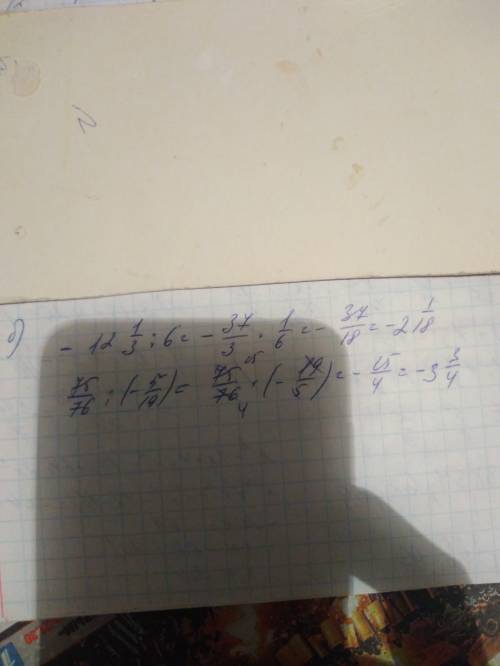 б)
- 12 1/3 : 6 = - 37/3 · 1/6 = - 37/18 = - 2 1/18
75/76 : (- 5/19) = 75/76 · (- 19/5) = - 15/4 = - 3 3/4
15
4